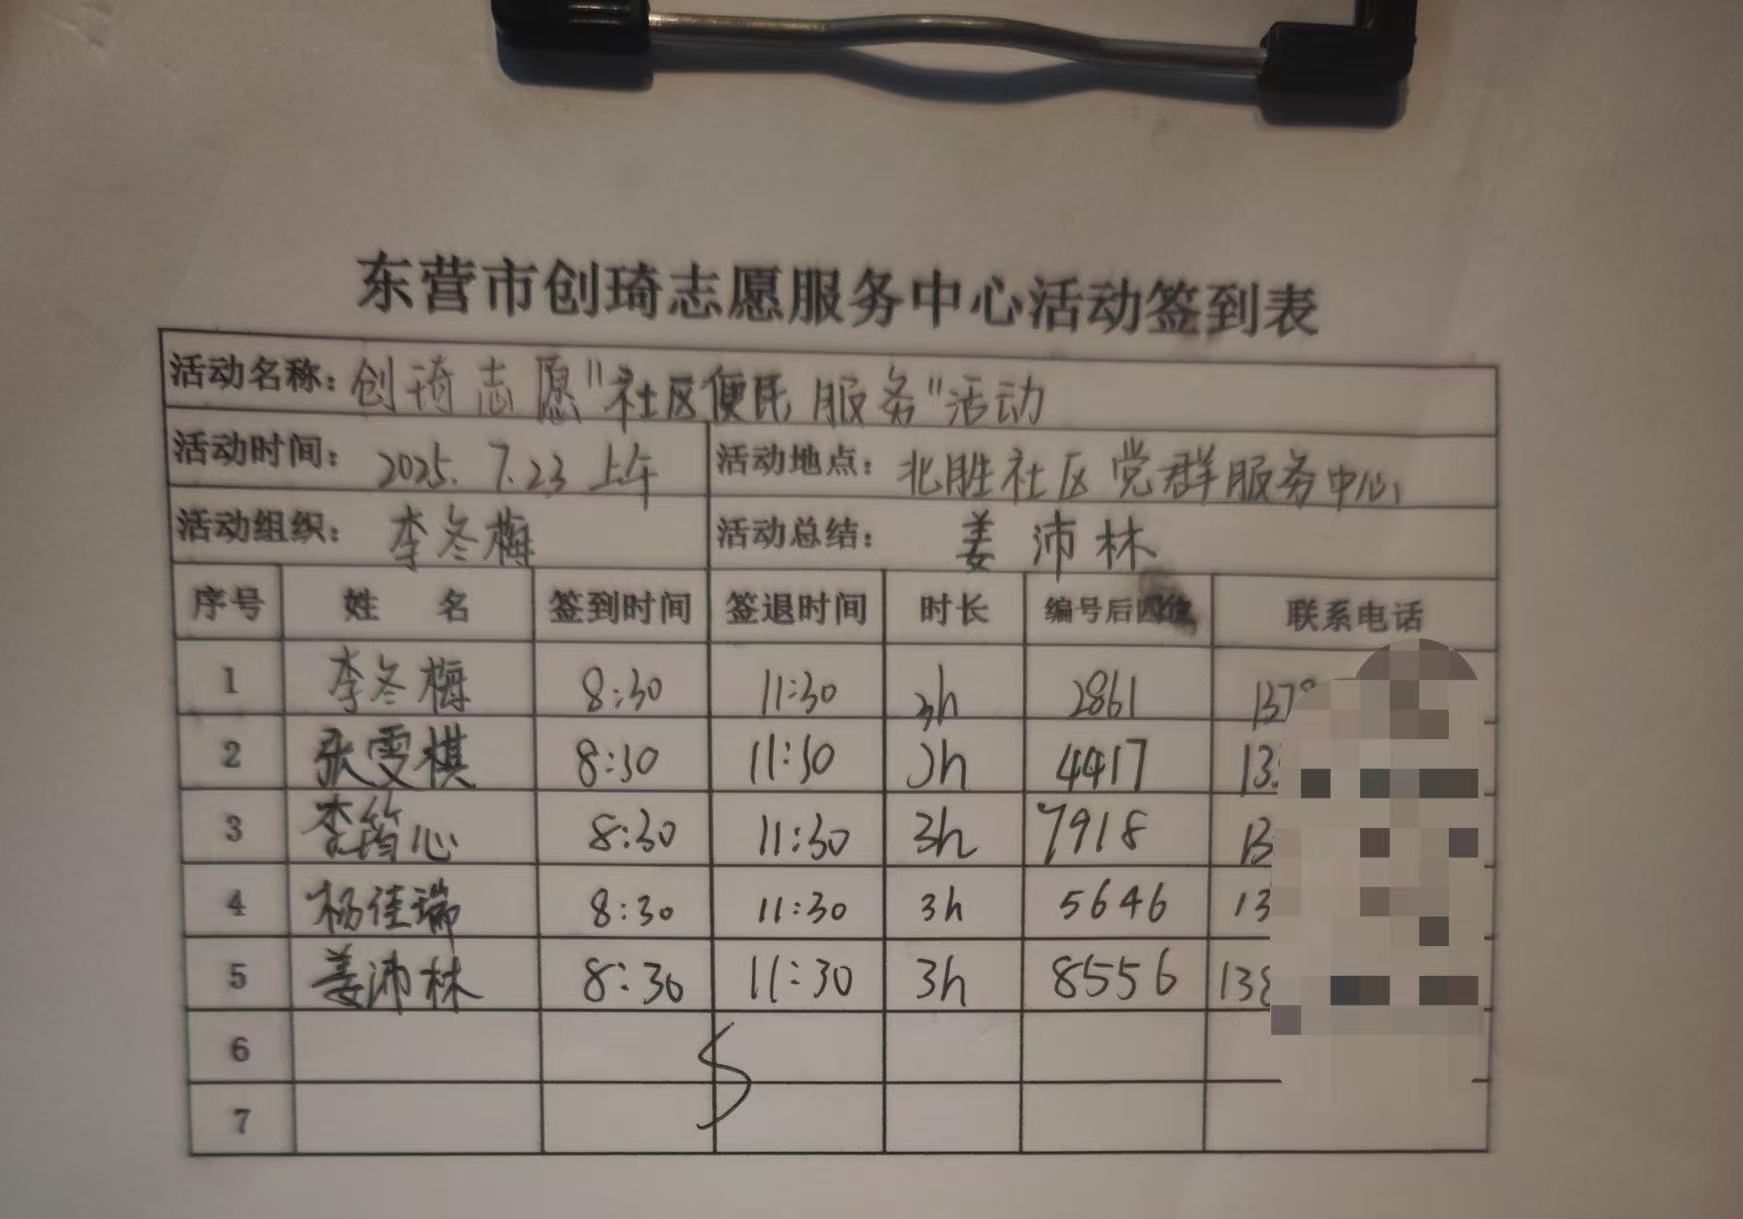 东营市创琦志愿服务中心活动签到表
活动名称：创琦志愿"社区便民服务"活动
活动时间：2025.7.23上午 活动地点：北胜社区党群服务中心
活动组织：李冬梅 活动总结：姜沛林
序号 姓名 签到时间 签退时间 时长 编号后四位 联系电话
1 李冬梅 8:30 11:30 3h 2861 137
2 张雯棋 8:30 11:30 3h 4417 13
3 李筠心 8:30 11:30 3h 7918 13
4 杨佳瑞 8:30 11:30 3h 5646 13
5 姜沛林 8:30 11:30 3h 8556 138
6
7